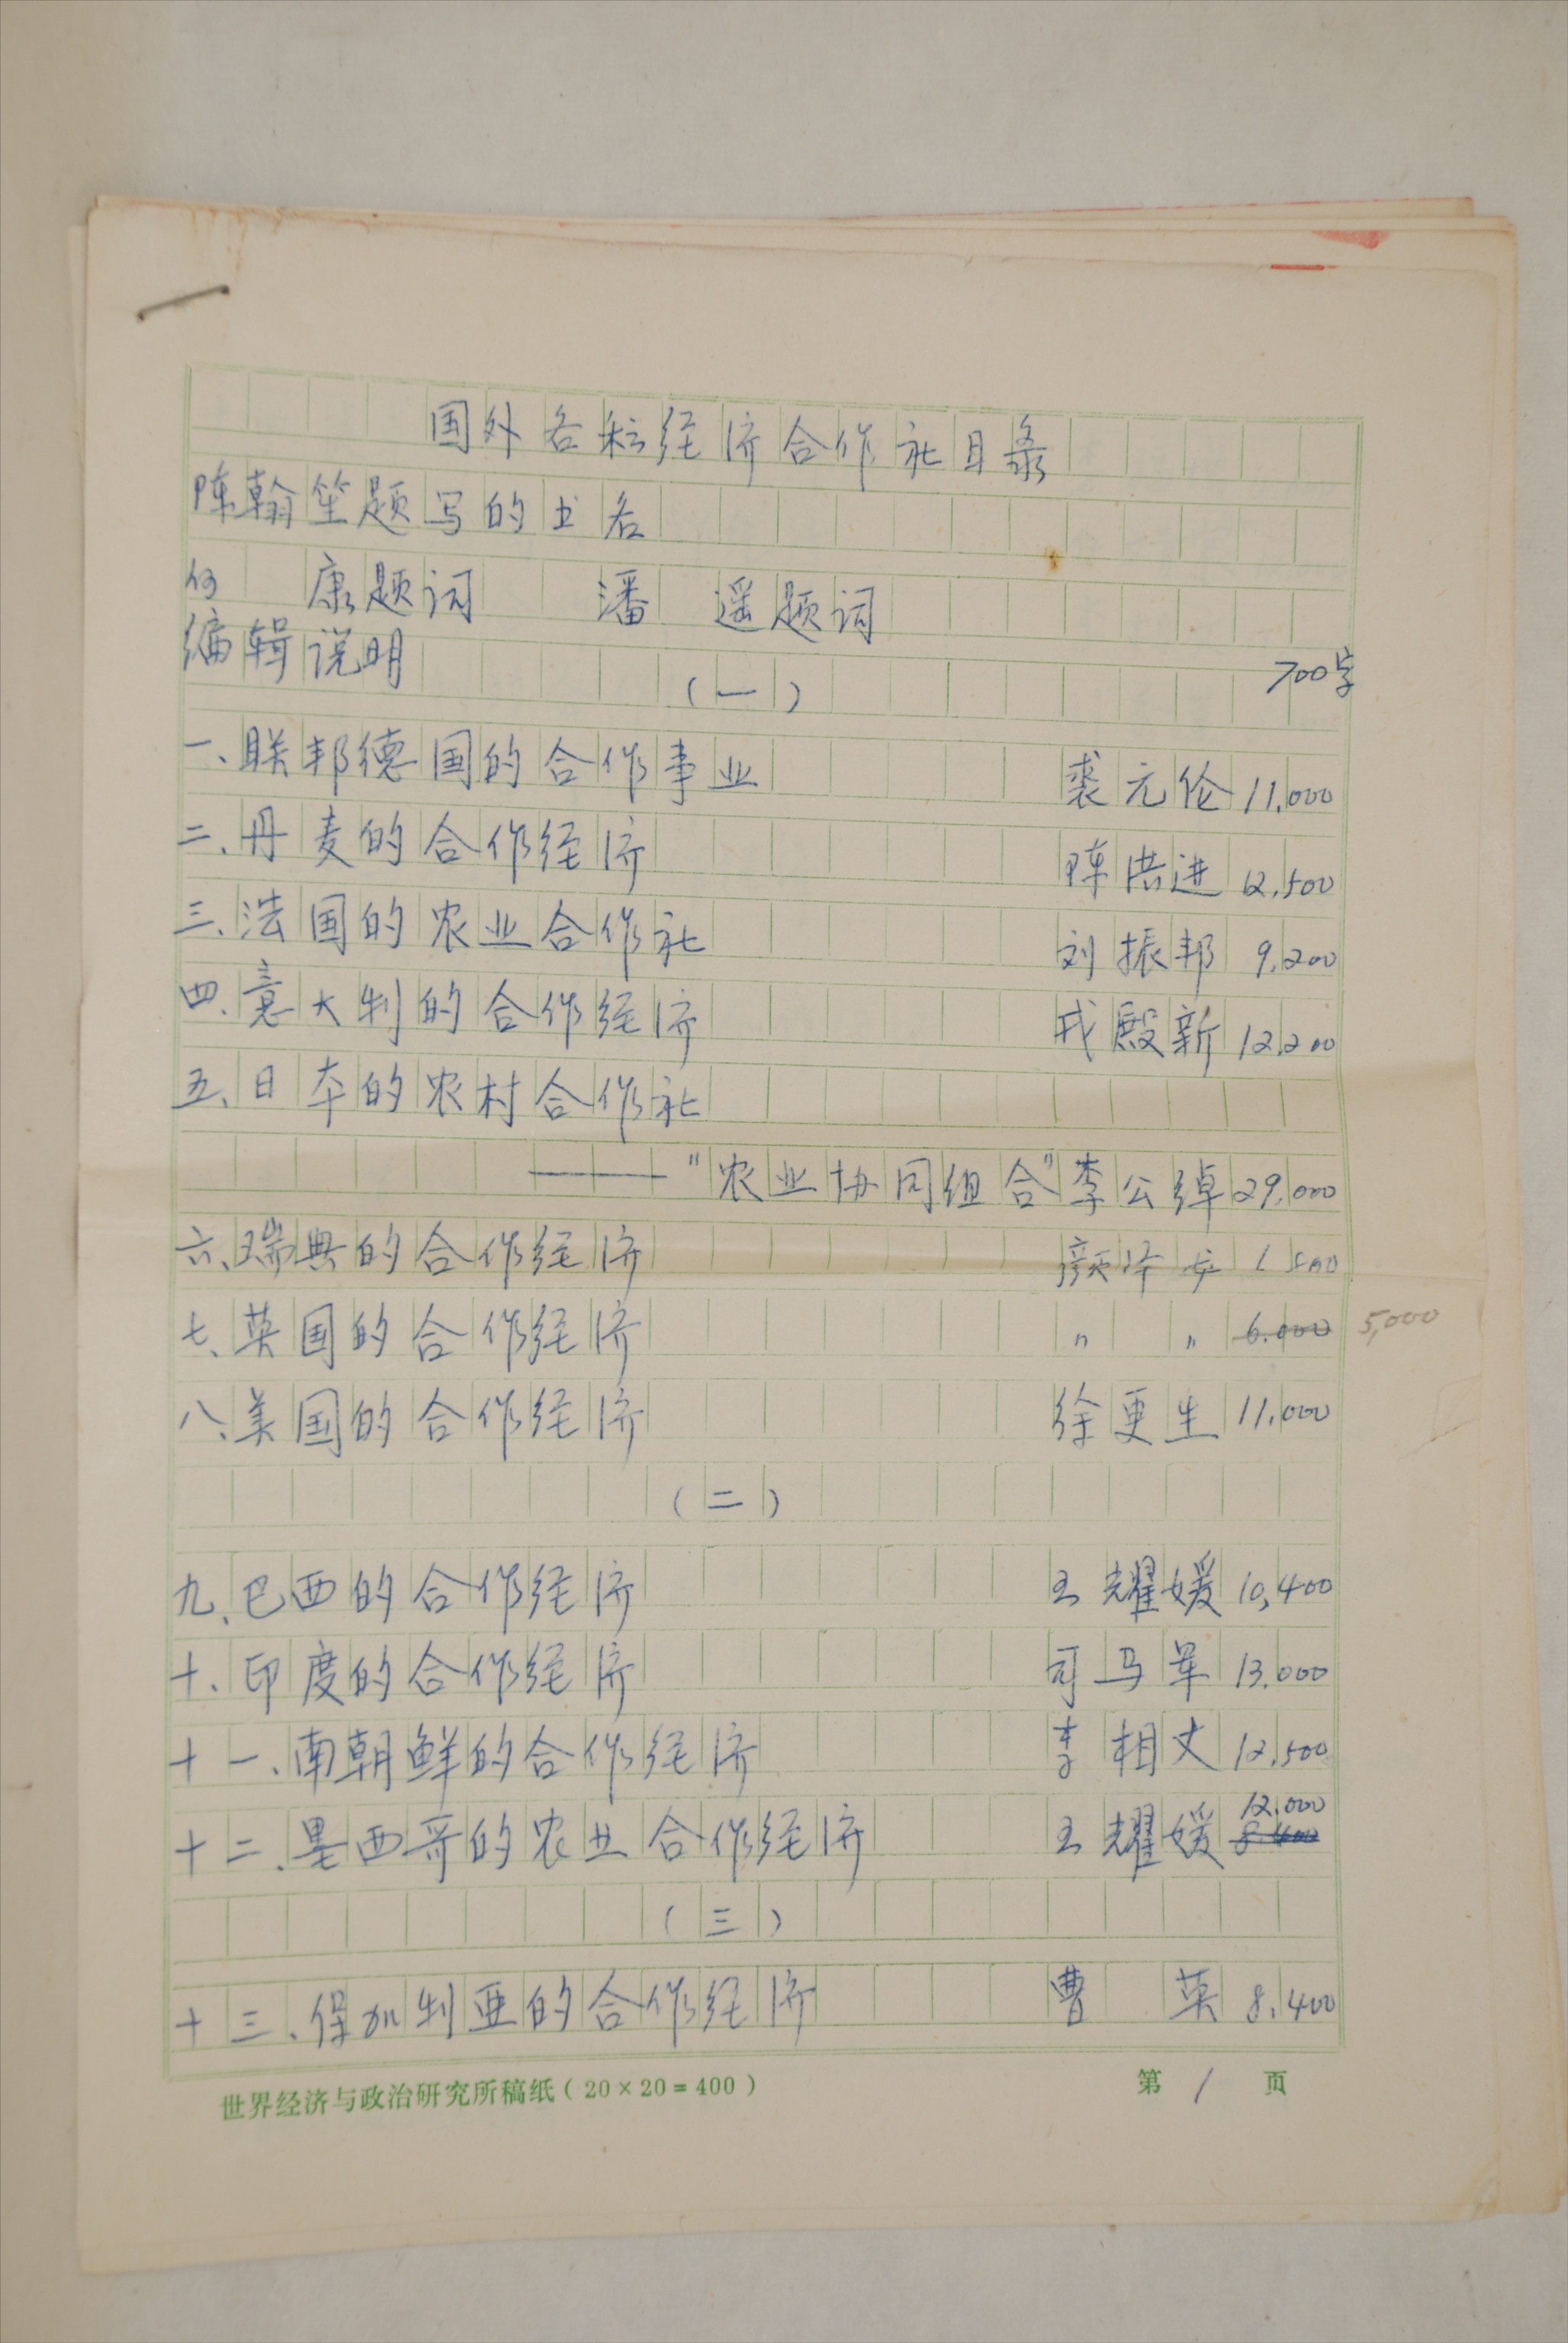 国外各种经济合作社目录
陈翰笙题写的书名
何 康题词 潘 遥题词
编辑说明 700字
(一)
一、联邦德国的合作事业 裘元伦 11,000
二、丹麦的合作经济 陈洪进 12,500
三、法国的农业合作社 刘振邦 9,200
四、意大利的合作经济 戎殿新 12,200
五、日本的农村合作社
——"农业协同组合" 李公绰 29,000
六、瑞典的合作经济 颜 500
七、英国的合作经济 〃 〃 6.000 5,000
八、美国的合作经济 徐更生 11,000
(二)
九、巴西的合作经济 王耀媛 10,400
十、印度的合作经济 司马军 13.000
十一、南朝鲜的合作经济 李相文 12,500
十二、墨西哥的农业合作经济 王耀媛 12,000
(三)
十三、保加利亚的合作经济 曹 英 8,400
世界经济与政治研究所稿纸(20×20=400) 第 1 页